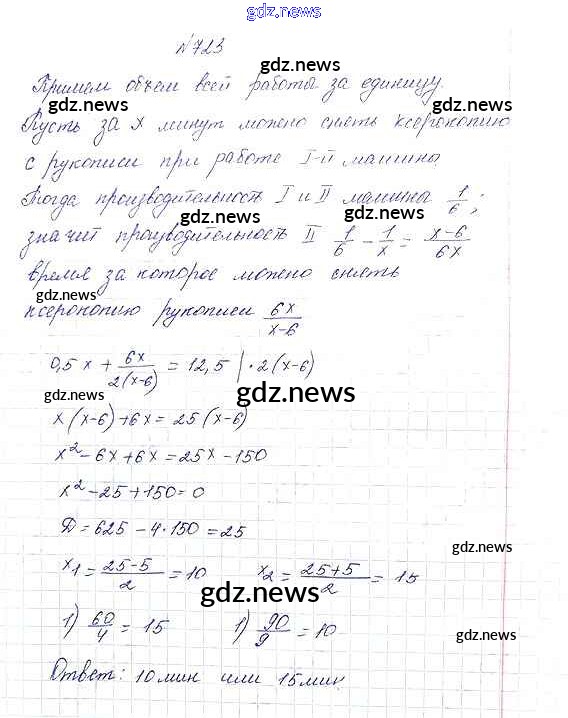 gdz.news
№723
gdz.news
Примем объем всей работы за единицу.
gdz.news gdz.news
Пусть за x минут можно снять ксерокопию
с рукописи при работе I-й машины.
Тогда производительность I и II машины 1/6;
gdz.news
значит производительность II 1/6 - 1/x = x-6/6x
время за которое можно снять
gdz.news
ксерокопию рукописи 6x/x-6
0,5x + 6x/2(x-6) = 12,5 | · 2(x-6)
gdz.news
x(x-6)+6x = 25(x-6)
gdz.news
x²-6x+6x = 25x-150
x²-25+150=0
Д = 625 - 4·150 = 25
gdz.news
x1 = 25-5/2 = 10 x2 = 25+5/2 = 15
gdz.news
1) 60/4 = 15 1) 90/9 = 10
gdz.news
Ответ: 10 мин или 15 мин